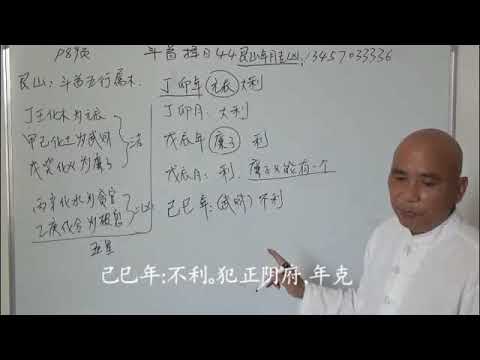 P89页
斗首择日44艮山年月吉凶:13457033336
艮山:斗首五行属木.
丁壬化木为元辰
甲己化土为武财
戊癸化火为廉子
=吉
丙辛化水为贪官
乙庚化金为破鬼
=凶
五星
丁卯年 元辰 大利
丁卯月: 大利
戊辰年 廉子 利
戊辰月: 利. 廉子只能有一个
己巳年:(武财)不利
己巳年:不利。犯正阴府,年克